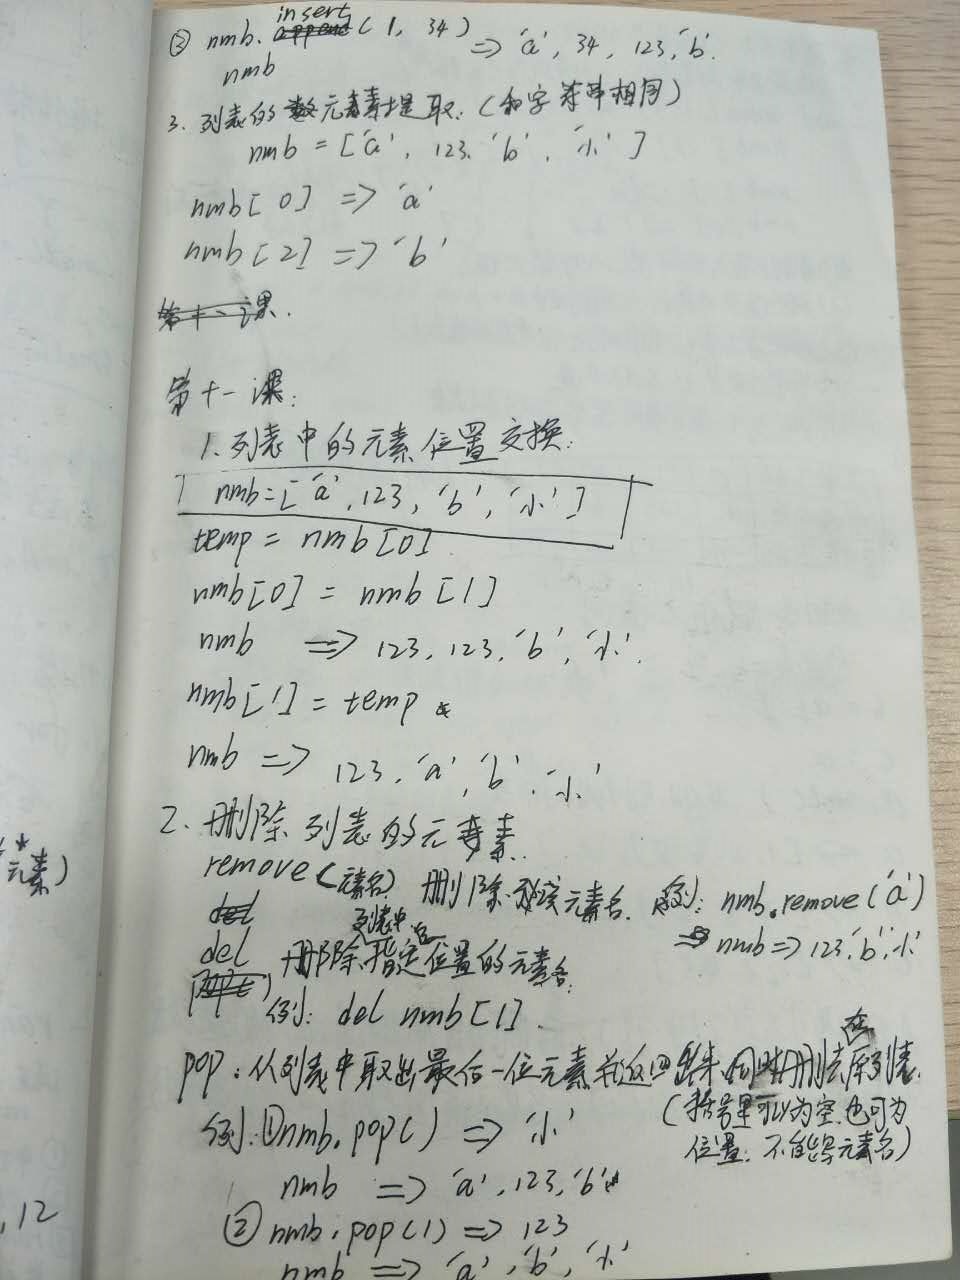 ③ nmb.insert(1, 34) => 'a', 34, 123, 'b'.
nmb
3. 列表的元素提取.(和字符串相同)
nmb = ['a', 123, 'b', '小']
nmb[0] => 'a'
nmb[2] => 'b'
第十一课.
第十一课:
1.列表中的元素位置交换.
nmb=['a',123,'b','小']
temp = nmb[0]
nmb[0] = nmb[1]
nmb => 123, 123, 'b', '小'.
nmb[1] = temp
nmb => 123, 'a', 'b', '小'
2. 删除列表的元素.
元素)
remove(元素名) 删除该元素名. 例: nmb.remove('a')
=> nmb => 123,'b','小'
del 删除列表中指定位置的元素名.
例: del nmb[1].
pop: 从列表中取出最后一位元素并返回出来.同时删去在原列表.
(括号里可以为空.也可为
位置. 不能写元素名)
例:①nmb.pop() => '小'
nmb => 'a',123,'b'
, 12
②nmb.pop(1) => 123
nmb => 'a','b','小'